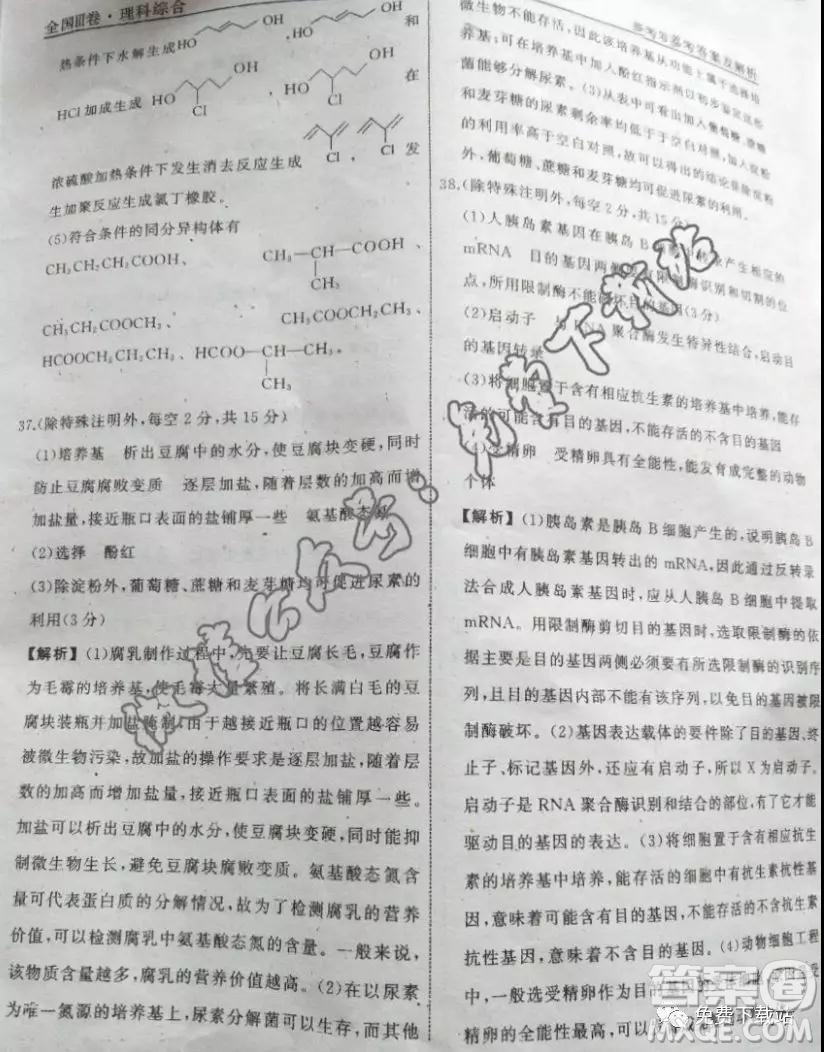 全国Ⅲ卷·理科综合
热条件下水解生成HO OH、HO OH和
HCl加成生成HO Cl OH、HO Cl OH在
浓硫酸加热条件下发生消去反应生成 Cl、Cl，发
生加聚反应生成氯丁橡胶。
(5)符合条件的同分异构体有
CH₃CH₂CH₂COOH、CH₃—CH—COOH、
CH₃
CH₃CH₂COOCH₃、CH₃COOCH₂CH₃、
HCOOCH₂CH₂CH₃、HCOO—CH—CH₃。
CH₃
37.(除特殊注明外,每空2分,共15分)
(1)培养基 析出豆腐中的水分,使豆腐块变硬,同时
防止豆腐腐败变质 逐层加盐,随着层数的加高而增
加盐量,接近瓶口表面的盐铺厚一些 氨基酸态氮
(2)选择 酚红
(3)除淀粉外,葡萄糖、蔗糖和麦芽糖均可促进尿素的
利用(3分)
【解析】(1)腐乳制作过程中,先要让豆腐长毛,豆腐作
为毛霉的培养基,使毛霉大量繁殖。将长满白毛的豆
腐块装瓶并加盐腌制,由于越接近瓶口的位置越容易
被微生物污染,故加盐的操作要求是逐层加盐,随着层
数的加高而增加盐量,接近瓶口表面的盐铺厚一些。
加盐可以析出豆腐中的水分,使豆腐块变硬,同时能抑
制微生物生长,避免豆腐块腐败变质。氨基酸态氮含
量可代表蛋白质的分解情况,故为了检测腐乳的营养
价值,可以检测腐乳中氨基酸态氮的含量。一般来说,
该物质含量越多,腐乳的营养价值越高。(2)在以尿素
为唯一氮源的培养基上,尿素分解菌可以生存,而其他
参考答案及解析
微生物不能存活,因此该培养基从功能上属于选择培
养基;可在培养基中加入酚红指示剂以初步鉴定这些
菌能够分解尿素。(3)从表中可看出加入葡萄糖、蔗糖
和麦芽糖的尿素剩余率均低于空白对照,加入淀粉
的利用率高于空白对照,故可以得出的结论是除淀粉
外,葡萄糖、蔗糖和麦芽糖均可促进尿素的利用。
38.(除特殊注明外,每空2分,共15分)
(1)人胰岛素基因在胰岛B 产生相应的
mRNA 目的基因两侧 有限制酶识别和切割的位
点,所用限制酶不能破坏目的基因(3分)
(2)启动子 与RNA聚合酶发生特异性结合,启动目
的基因转录
(3)将细胞置于含有相应抗生素的培养基中培养,能存
活的可能含有目的基因,不能存活的不含目的基因
(4)受精卵 受精卵具有全能性,能发育成完整的动物
个体
【解析】(1)胰岛素是胰岛B细胞产生的,说明胰岛B
细胞中有胰岛素基因转出的mRNA,因此通过反转录
法合成人胰岛素基因时,应从人胰岛B细胞中提取
mRNA。用限制酶剪切目的基因时,选取限制酶的依
据主要是目的基因两侧必须要有所选限制酶的识别序
列,且目的基因内部不能有该序列,以免目的基因被限
制酶破坏。(2)基因表达载体的要件除了目的基因、终
止子、标记基因外,还应有启动子,所以X为启动子。
启动子是RNA聚合酶识别和结合的部位,有了它才能
驱动目的基因的表达。(3)将细胞置于含有相应抗生
素的培养基中培养,能存活的细胞中有抗生素抗性基
因,意味着可能含有目的基因,不能存活的不含抗生素
抗性基因,意味着不含有目的基因。(4)动物细胞工程
中,一般选受精卵作为目的基因的受体细胞,原因是受
精卵的全能性最高,可以
答案圈
MXQE.COM
免费下载站